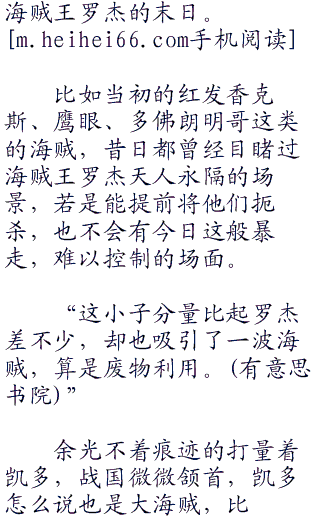 海贼王罗杰的末日。
[m.heihei66.com手机阅读]
比如当初的红发香克
斯、鹰眼、多佛朗明哥这类
的海贼，昔日都曾经目睹过
海贼王罗杰天人永隔的场
景，若是能提前将他们扼
杀，也不会有今日这般暴
走，难以控制的场面。
“这小子分量比起罗杰
差不少，却也吸引了一波海
贼，算是废物利用。(有意思
书院)”
余光不着痕迹的打量着
凯多，战国微微颔首，凯多
怎么说也是大海贼，比